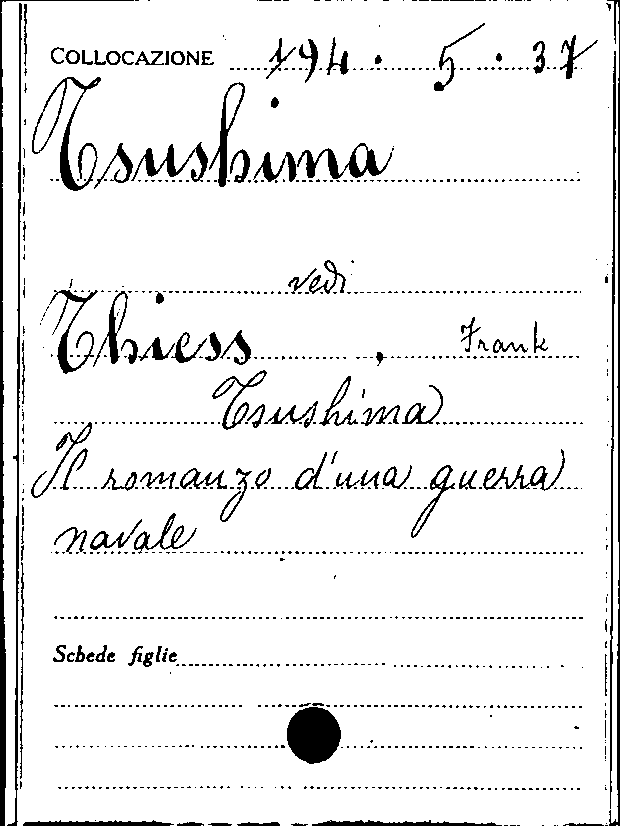 COLLOCAZIONE 194 . 5 . 37
Tsushima
vedi
Thiess , Frank
Tsushima
Il romanzo d'una guerra
navale
Schede figlie